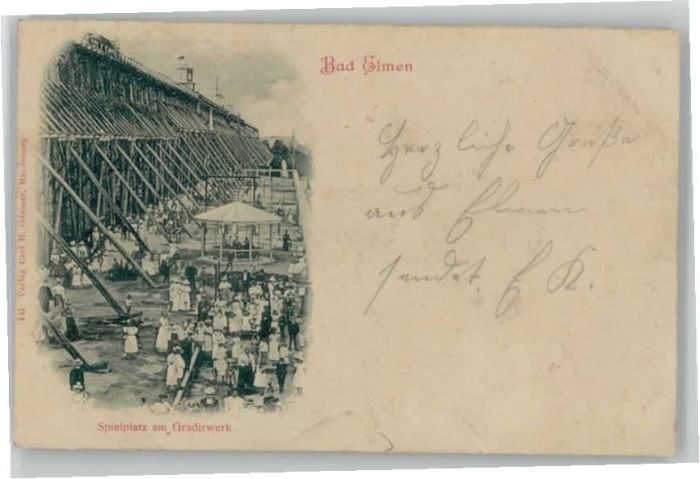 Bad Elmen
Herzliche Grüße
aus Elmen
sendet E K.
Spielplatz am Gradirwerk
441 Verlag Carl H. Odemar, Magdeburg